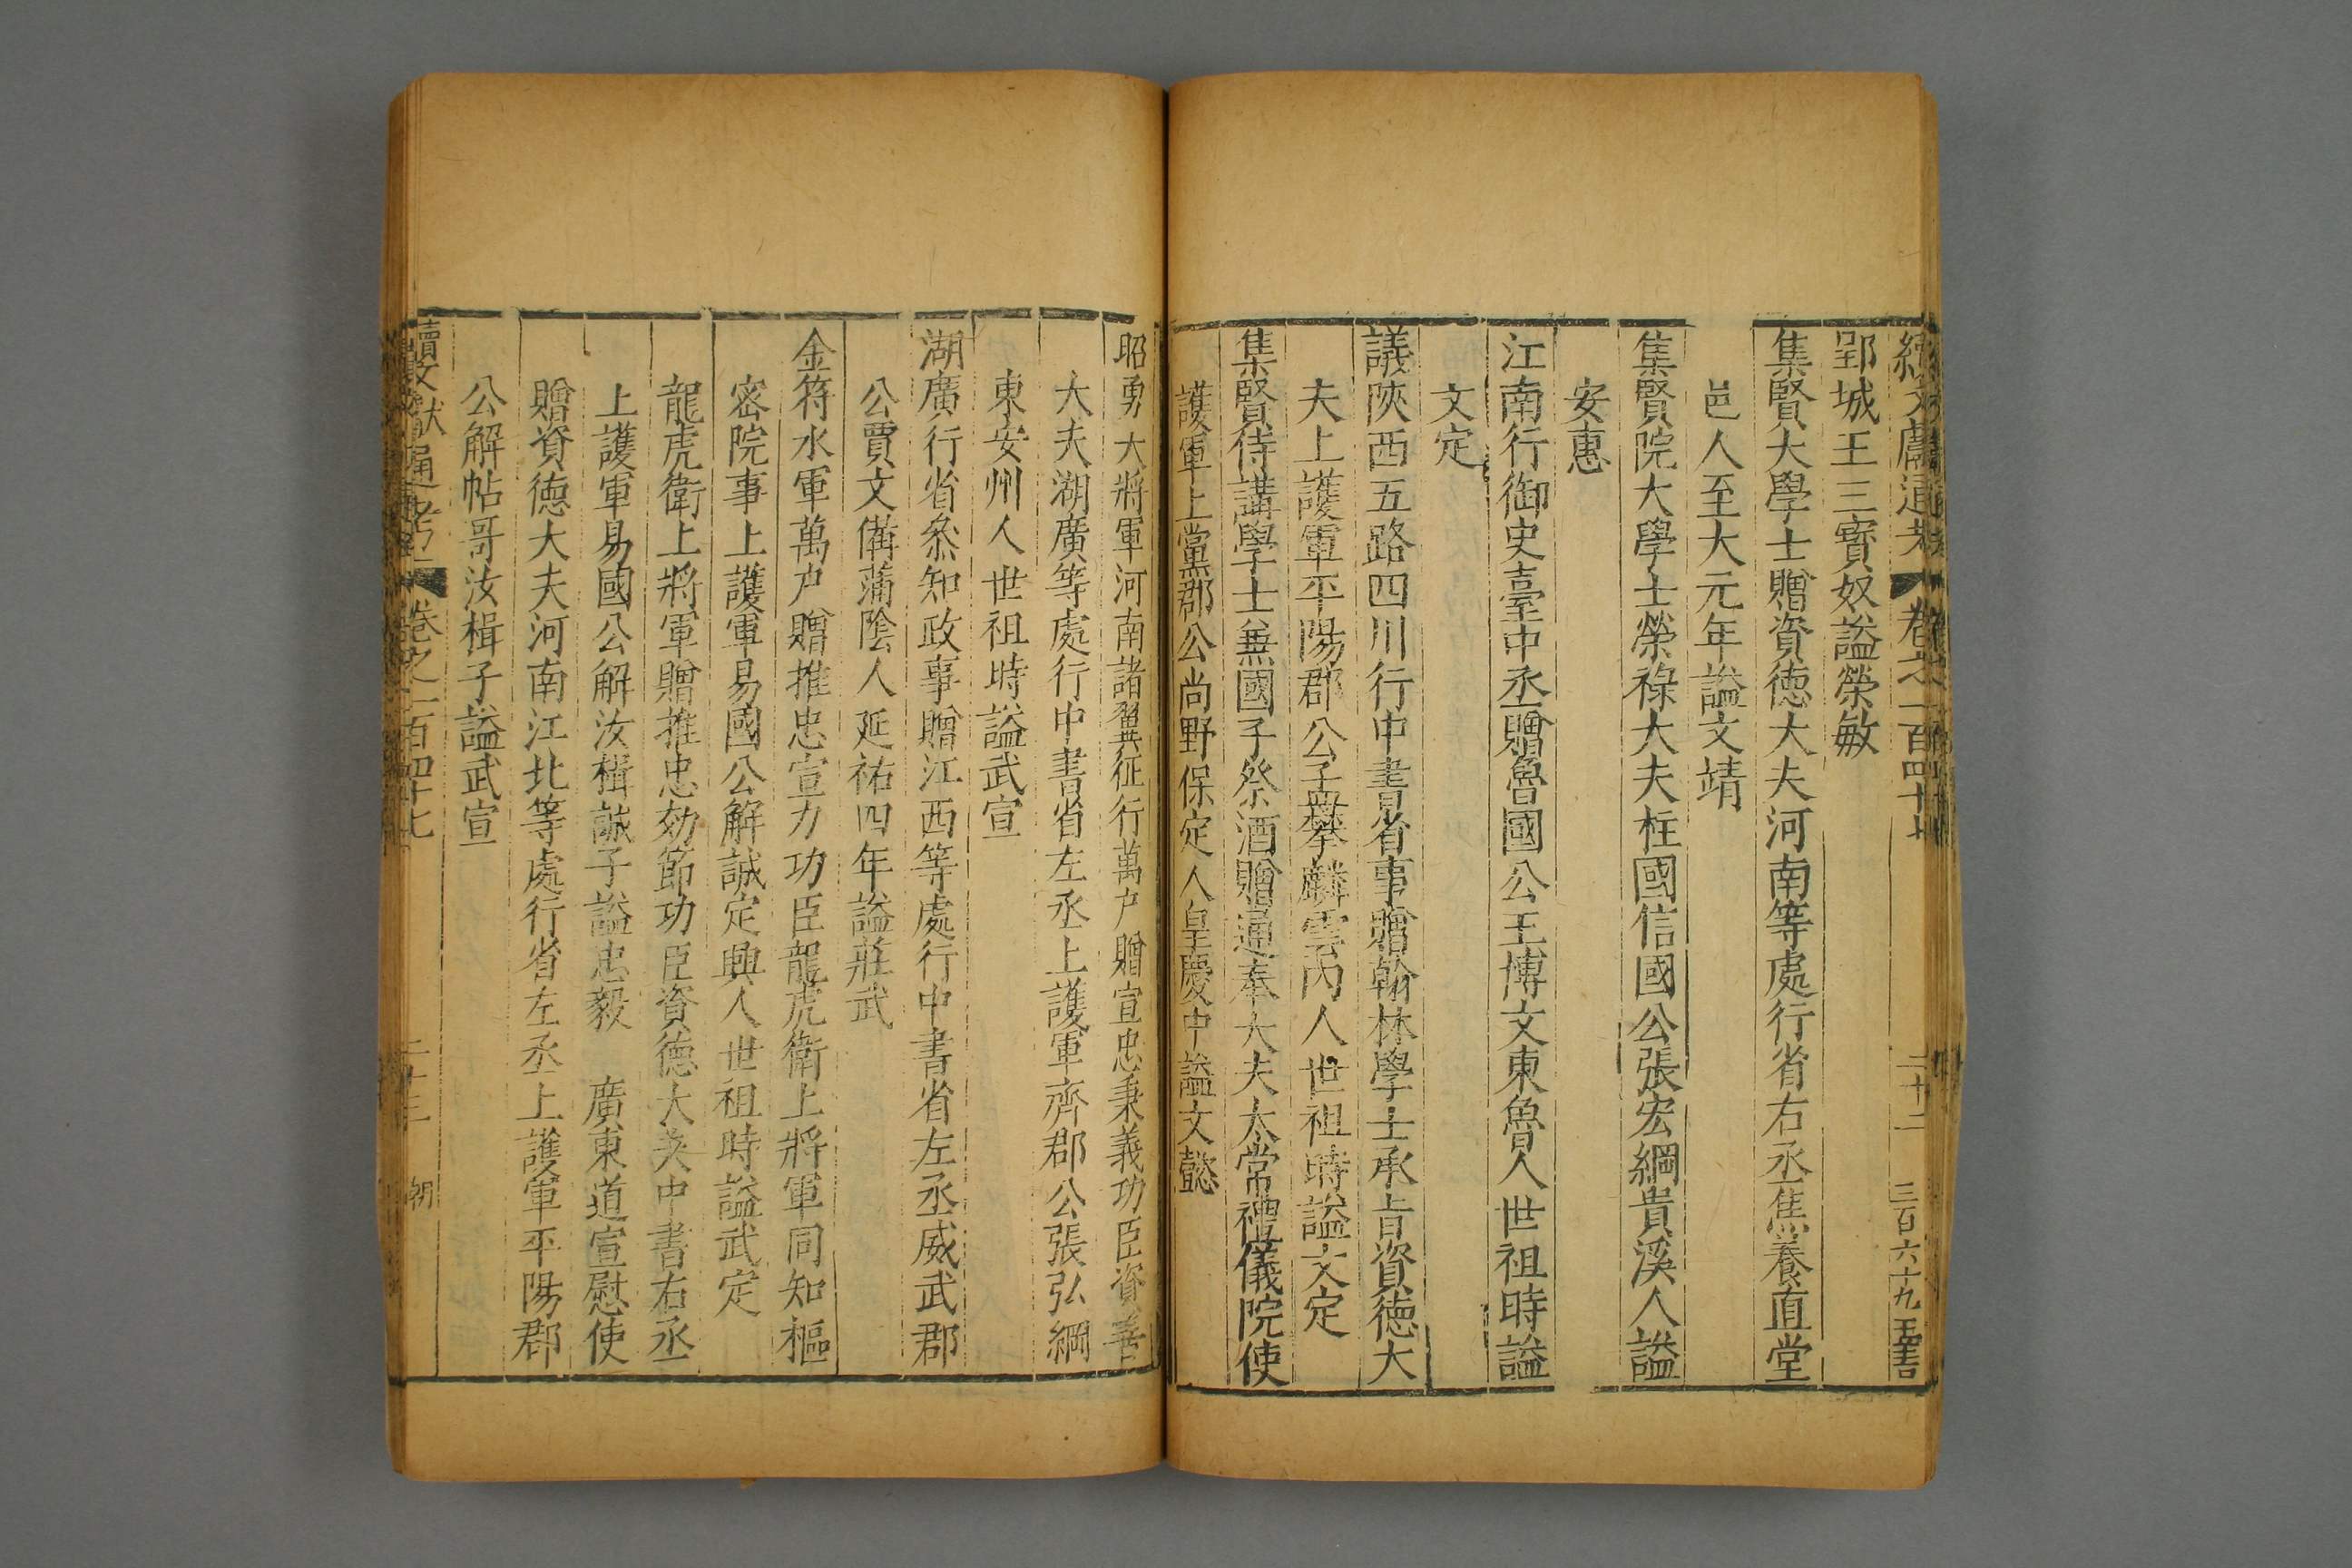 續文獻通考 卷之一百四十七 二十二 三百六十九 王言
郢城王三寳奴謚榮敏
集賢大學士贈資德大夫河南等處行省右丞焦養直堂
邑人至大元年謚文靖
集賢院大學士榮祿大夫柱國信國公張宏綱貴溪人謚
安惠
江南行御史臺中丞贈魯國公王博文東魯人世祖時謚
文定
議陝西五路四川行中書省事贈翰林學士承旨資德大
夫上護軍平陽郡公孟攀麟雲內人世祖時謚文定
集賢侍講學士兼國子祭酒贈通奉大夫太常禮儀院使
護軍上黨郡公尚野保定人皇慶中謚文懿
昭勇大將軍河南諸翼征行萬户贈宣忠秉義功臣資善
大夫湖廣等處行中書省左丞上護軍齊郡公張弘綱
東安州人世祖時謚武宣
湖廣行省叅知政事贈江西等處行中書省左丞威武郡
公賈文備蒲陰人延祐四年謚莊武
金符水軍萬户贈推忠宣力功臣龍虎衛上將軍同知樞
密院事上護軍易國公解誠定興人世祖時謚武定
龍虎衛上將軍贈推忠効節功臣資德大夫中書右丞
上護軍易國公解汝楫誠子謚忠毅 廣東道宣慰使
贈資德大夫河南江北等處行省左丞上護軍平陽郡
公解帖哥汝楫子謚武宣
續文獻通考 卷之一百四十七 二十三 朝